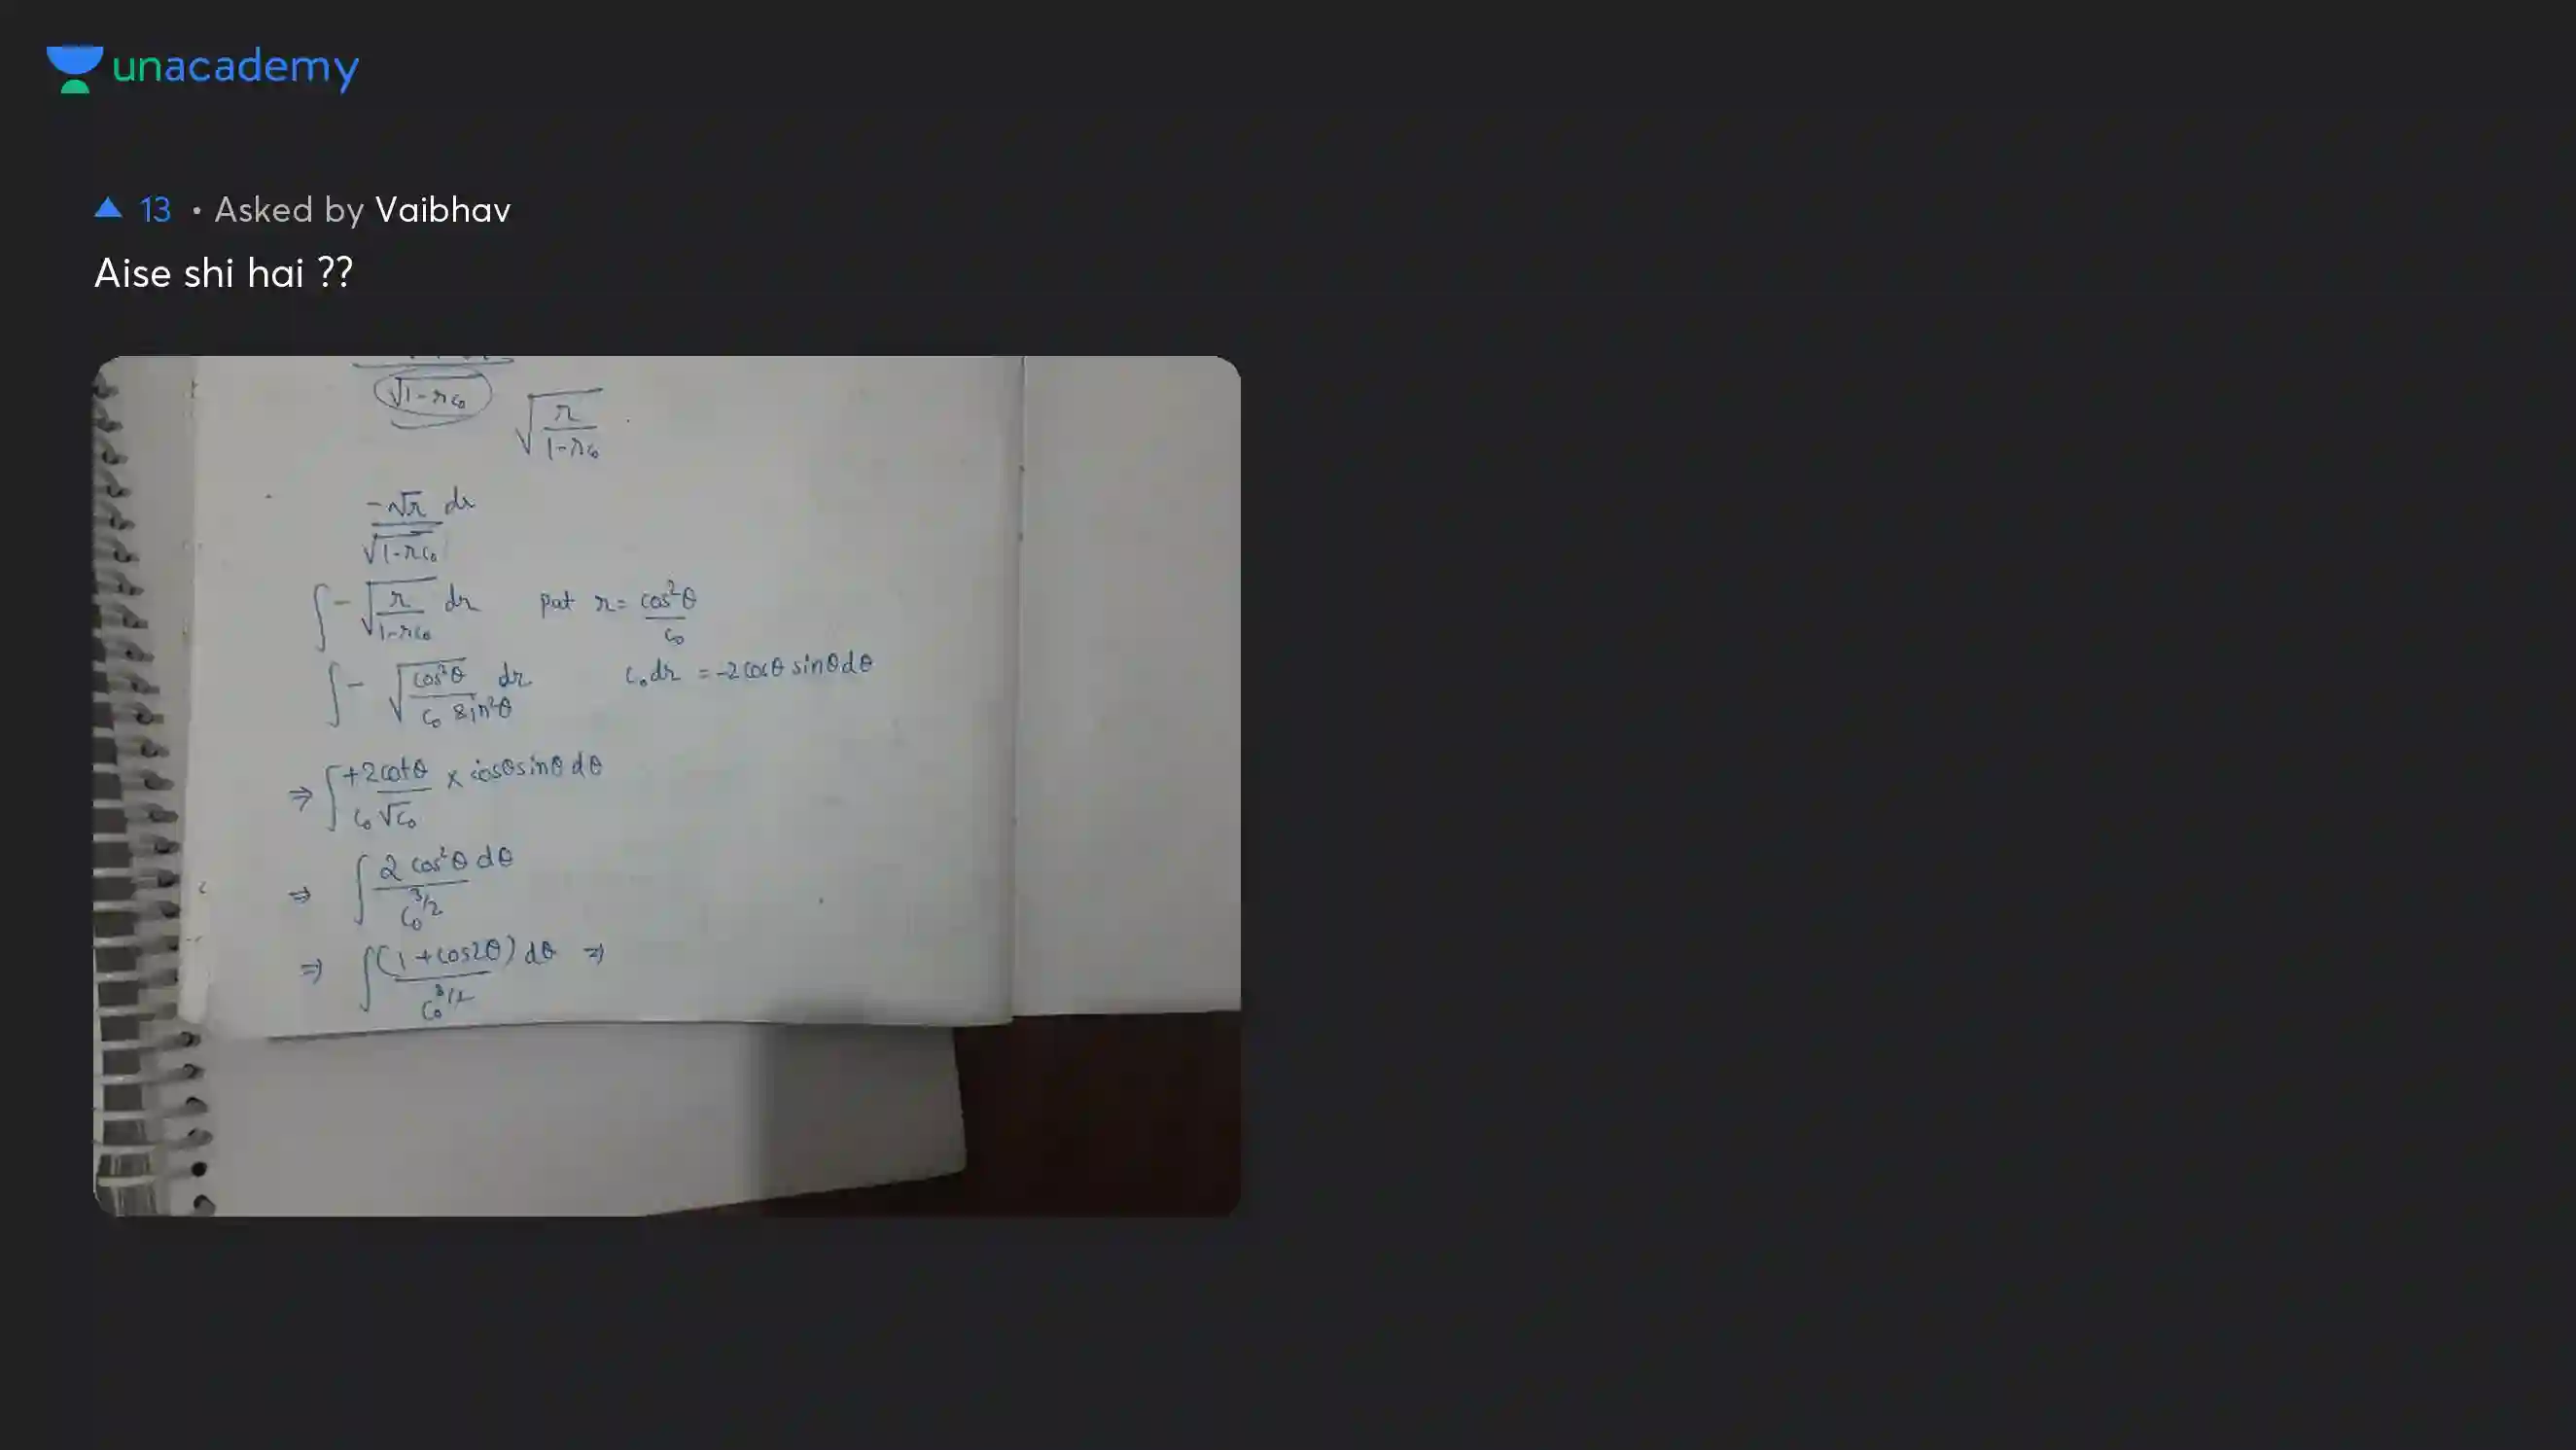 unacademy
13 • Asked by Vaibhav
Aise shi hai ??
√1-rc₀
√(r/(1-rc₀))
-√r dr / √1-rc₀
∫ - √(r/(1-rc₀)) dr put r = cos²θ/c₀
∫ - √(cos²θ/(c₀ sin²θ)) dr c₀dr = -2cosθ sinθdθ
⇒ ∫ +2cotθ/(c₀√c₀) × cosθsinθ dθ
⇒ ∫ 2 cos²θ dθ / c₀^3/2
⇒ ∫ (1+cos2θ) dθ / c₀^3/2 ⇒